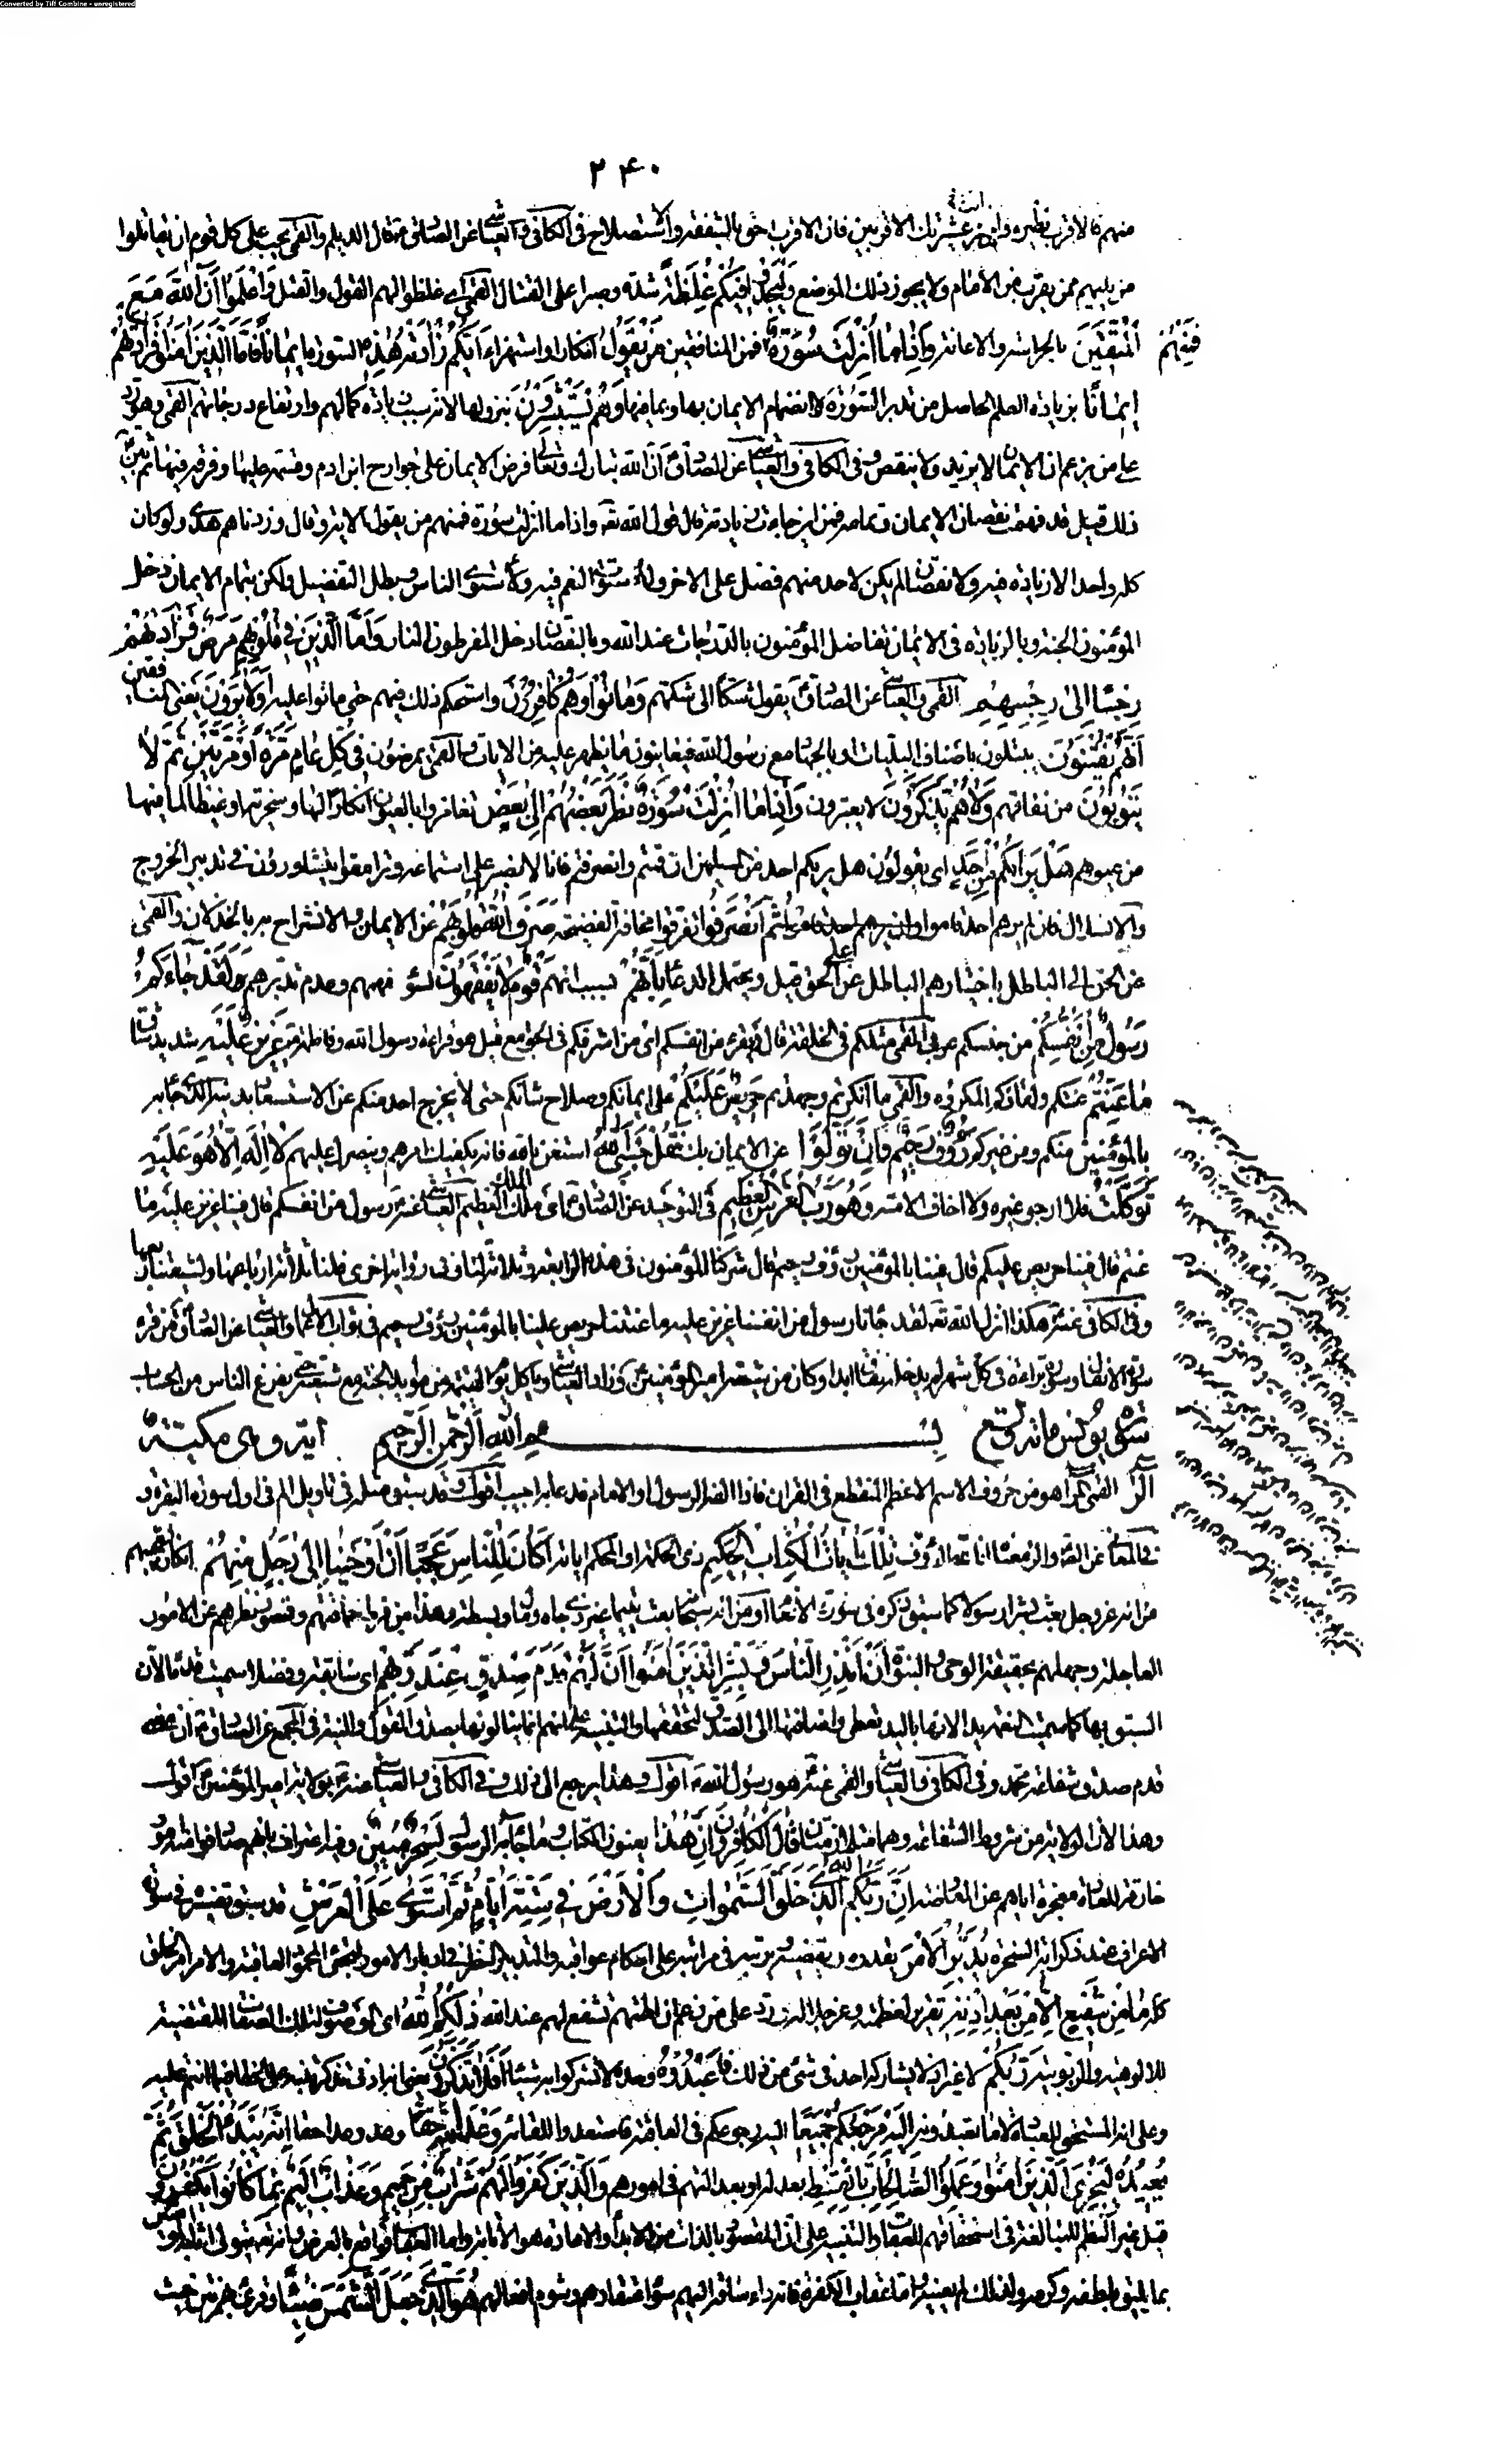 Converted by Tiff Combine - unregistered
۲۴۰
منهم فالاقرب نظيره وانذر عشيرتك الاقربين فان الاقرب احق بالشفقة والاستصلاح في الكافي والعياشي عن الصادق قال الديلم والقمي يجب على كل قوم ان يقاتلوا
من يليهم ممن يقرب من الامام ولا يجوز ذلك الموضع وَلْيَجِدُوا فِيكُمْ غِلْظَةً شدة وصبرا على القتال القمي اي غلظوا لهم القول والقتل وَاعْلَمُوا أَنَّ اللَّهَ مَعَ
الْمُتَّقِينَ بالحراسة والاعانة وَإِذَا مَا أُنْزِلَتْ سُورَةٌ فمن المنافقين مَنْ يَقُولُ انكارا واستهزاء أَيُّكُمْ زَادَتْهُ هَذِهِ السورة إِيمَانًا فَأَمَّا الَّذِينَ آمَنُوا فَزَادَتْهُمْ
فَمِنْهُمْ
إِيمَانًا بزيادة العلم الحاصل من تدبر السورة لانضمام الايمان بها وبما فيها وَهُمْ يَسْتَبْشِرُونَ بنزولها لانه سبب زيادة كمالهم وارتفاع درجاتهم القمي وهو رد
على من يزعم ان الايمان لا يزيد ولا ينقص وفي الكافي والعياشي عن الصادق ان الله تبارك وتعالى فرض الايمان على جوارح ابن ادم وقسمه عليها وفرقه فيها ثم بين
ذلك قيل قد فهمت نقصان الايمان وتمامه فمن اين جاءت زيادته قال قول الله تعه واذا ما انزلت سورة فمنهم من يقول الاية وقال وزدناهم هدى ولو كان
كله واحدا لا زيادة فيه ولا نقصان لم يكن لاحد منهم فضل على الاخر ولاستوت النعم فيه ولاستوى الناس وبطل التفضيل ولكن بتمام الايمان دخل
المؤمنون الجنة وبالزيادة في الايمان تفاضل المؤمنون بالدرجات عند الله وبالنقصان دخل المفرطون النار وَأَمَّا الَّذِينَ فِي قُلُوبِهِمْ مَرَضٌ فَزَادَتْهُمْ
رِجْسًا إِلَى رِجْسِهِمْ القمي والعياشي عن الصادق يقول شكا الى شكهم وَمَاتُوا وَهُمْ كَافِرُونَ واستحكم ذلك فيهم حتى ماتوا عليه أَوَلَا يَرَوْنَ يعني المنافقين
أَنَّهُمْ يُفْتَنُونَ يبتلون باصناف البليات او بالجهاد مع رسول الله فيعاينون ما يظهر عليه من الايات والقمي يمرضون فِي كُلِّ عَامٍ مَرَّةً أَوْ مَرَّتَيْنِ ثُمَّ لَا
يَتُوبُونَ من نفاقهم وَلَا هُمْ يَذَّكَّرُونَ لا يعتبرون وَإِذَا مَا أُنْزِلَتْ سُورَةٌ نَظَرَ بَعْضُهُمْ إِلَى بَعْضٍ تغامزوا بالعيون انكارا لها وسخرية او غيظا لما فيها
من عيوبهم هَلْ يَرَاكُمْ مِنْ أَحَدٍ اي يقولون هل يريكم احد من المسلمين ان قمتم وانصرفتم فانا لا نصبر على استماعه وترامقوا يتشاورون في تدبير الخروج
والانسلال فان لم يرهم احد قاموا وان يرهم احد اقاموا ثُمَّ انْصَرَفُوا تفرقوا مخافة الفضيحة صَرَفَ اللَّهُ قُلُوبَهُمْ عن الايمان والانشراح به بالخذلان والقمي
عن الحق الى الباطل باختيارهم الباطل على الحق قيل ويحتمل الدعاء بِأَنَّهُمْ بسبب انهم قَوْمٌ لَا يَفْقَهُونَ لسوء فهمهم وعدم تدبرهم لَقَدْ جَاءَكُمْ
رَسُولٌ مِنْ أَنْفُسِكُمْ من جنسكم عربي القمي مثلكم في الخلقة قال ويقرء من انفسكم اي من اشرفكم في الجوامع قيل هو قراءة رسول الله وفاطمة عَزِيزٌ عَلَيْهِ شديد شاق
مَا عَنِتُّمْ عنتكم ولقاؤكم المكروه والقمي ما انكرتم وجحدتم حَرِيصٌ عَلَيْكُمْ على ايمانكم وصلاح شانكم حتى لا يخرج احد منكم عن الاستسعاد بدينه الذي جاء به
بِالْمُؤْمِنِينَ منكم ومن غيركم رَءُوفٌ رَحِيمٌ فَإِنْ تَوَلَّوْا عن الايمان بك فَقُلْ حَسْبِيَ اللَّهُ استغن بالله فانه يكفيك امرهم وينصرك عليهم لَا إِلَهَ إِلَّا هُوَ عَلَيْهِ
تَوَكَّلْتُ فلا ارجو غيره ولا اخاف الا منه وَهُوَ رَبُّ الْعَرْشِ الْعَظِيمِ في التوحيد عن الصادق اي ملك الملك العظيم العياشي عنه رسول من انفسكم قال فينا عزيز عليه ما
عنتم قال فينا حريص عليكم قال فينا بالمؤمنين رؤف رحيم قال شركنا المؤمنون في هذه الرابعة وثلاثة لنا وفي رواية اخرى فلنا ثلاثة ارباعها ولشيعتنا ربعها
وفي الكافي عنه هكذا انزل الله تعه لقد جاءنا رسول من انفسنا عزيز عليه ما عنتنا حريص علينا بالمؤمنين رؤف رحيم في ثواب الاعمال والعياشي عن الصادق من قرء
سورة الانفال وسورة براءة في كل شهر لم يدخله نفاق ابدا وكان من شيعة امير المؤمنين وزاد العياشي وياكل يوم القيمة من موائد الجنة مع شيعته حتى يفرغ الناس من الحساب
سورة يونس مائة وتسع بِسْمِ اللَّهِ الرَّحْمَنِ الرَّحِيمِ اية وهي مكية
الر القمي الر هو من حروف الاسم الاعظم المنقطع في القران فاذا الفه الرسول او الامام فدعا به اجيب اقول وقد سبق مثله في تاويل الم في اول سورة البقرة و
في المعاني عن الصادق والر معناه انا الله الرؤف تِلْكَ آيَاتُ الْكِتَابِ الْحَكِيمِ ذي الحكمة او المحكم اياته أَكَانَ لِلنَّاسِ عَجَبًا أَنْ أَوْحَيْنَا إِلَى رَجُلٍ مِنْهُمْ انكار لتعجبهم
من انه عز وجل بعث بشرا رسولا كما سبق ذكره في سورة الانعام او من انه سبحانه بعث يتيما غير ذي جاه ومال وبسطة وهذا من فرط حماقتهم وقصور نظرهم عن الامور
العاجلة وجهلهم بحقيقة الوحي والنبوة أَنْ أَنْذِرِ النَّاسَ وَبَشِّرِ الَّذِينَ آمَنُوا أَنَّ لَهُمْ قَدَمَ صِدْقٍ عِنْدَ رَبِّهِمْ اي سابقة وفضلا سميت قدما لان
السبق بها كما سميت النعمة يدا لانها باليد تعطى واضافتها الى الصدق لتحققها والتنبيه على انهم انما ينالونها بصدق القول والنية في المجمع عن الصادق ان معنى
قدم صدق شفاعة محمد وفي الكافي والعياشي والقمي عنه هو رسول الله اقول وهذا يرجع الى ذلك وفي الكافي والعياشي عنه بولاية امير المؤمنين اقول
وهذا لان الولاية من شروط الشفاعة وهما متلازمتان قَالَ الْكَافِرُونَ إِنَّ هَذَا يعنون الكتاب وما جاء به الرسول لَسِحْرٌ مُبِينٌ وفيه اعتراف بانهم صادفوا منه امورا
خارقة للعادة معجزة اياهم عن المعارضة إِنَّ رَبَّكُمُ اللَّهُ الَّذِي خَلَقَ السَّمَوَاتِ وَالْأَرْضَ فِي سِتَّةِ أَيَّامٍ ثُمَّ اسْتَوَى عَلَى الْعَرْشِ قد سبق تفسيره في سورة
الاعراف عند ذكر اية السخرة يُدَبِّرُ الْأَمْرَ يقدره ويقضيه ويرتبه في مراتبه على احكام عواقبه والتدبير النظر في ادبار الامور لتجيء محمودة العاقبة والامر امر الخلق
كله مَا مِنْ شَفِيعٍ إِلَّا مِنْ بَعْدِ إِذْنِهِ تقرير لعظمته وعز جلاله ورد على من زعم ان الهتهم تشفع لهم عند الله ذَلِكُمُ اللَّهُ اي الموصوف بتلك الصفات المقتضية
للالوهية والربوبية رَبُّكُمْ لا غير اذ لا يشاركه احد في شئ من ذلك فَاعْبُدُوهُ وحده لا تشركوا به شيئا أَفَلَا تَذَكَّرُونَ يعني انه ادنى تذكر ينبه على الخطاء فيما انتم عليه
وعلى انه المستحق للعبادة لا ما تعبدونه إِلَيْهِ مَرْجِعُكُمْ جَمِيعًا اليه رجوعكم في العاقبة فاستعدوا للقائه وَعْدَ اللَّهِ حَقًّا وعد وعدا حقا إِنَّهُ يَبْدَؤُا الْخَلْقَ ثُمَّ
يُعِيدُهُ لِيَجْزِيَ الَّذِينَ آمَنُوا وَعَمِلُوا الصَّالِحَاتِ بِالْقِسْطِ بعدله او بعدالتهم في امورهم وَالَّذِينَ كَفَرُوا لَهُمْ شَرَابٌ مِنْ حَمِيمٍ وَعَذَابٌ أَلِيمٌ بِمَا كَانُوا يَكْفُرُونَ
قيل غير النظم للمبالغة في استحقاقهم للعقاب والتنبيه على ان المقصود بالذات من الابداء والاعادة هو الاثابة واما العقاب فواقع بالعرض وانه تعه يتولى اثابة المؤمنين
بما يليق بلطفه وكرمه ولذلك لم يعينه واما عقاب الكفرة فانه داء ساقه اليهم سوء اعتقادهم وشوم افعالهم هُوَ الَّذِي جَعَلَ الشَّمْسَ ضِيَاءً وقرئ بهمزتين حيث